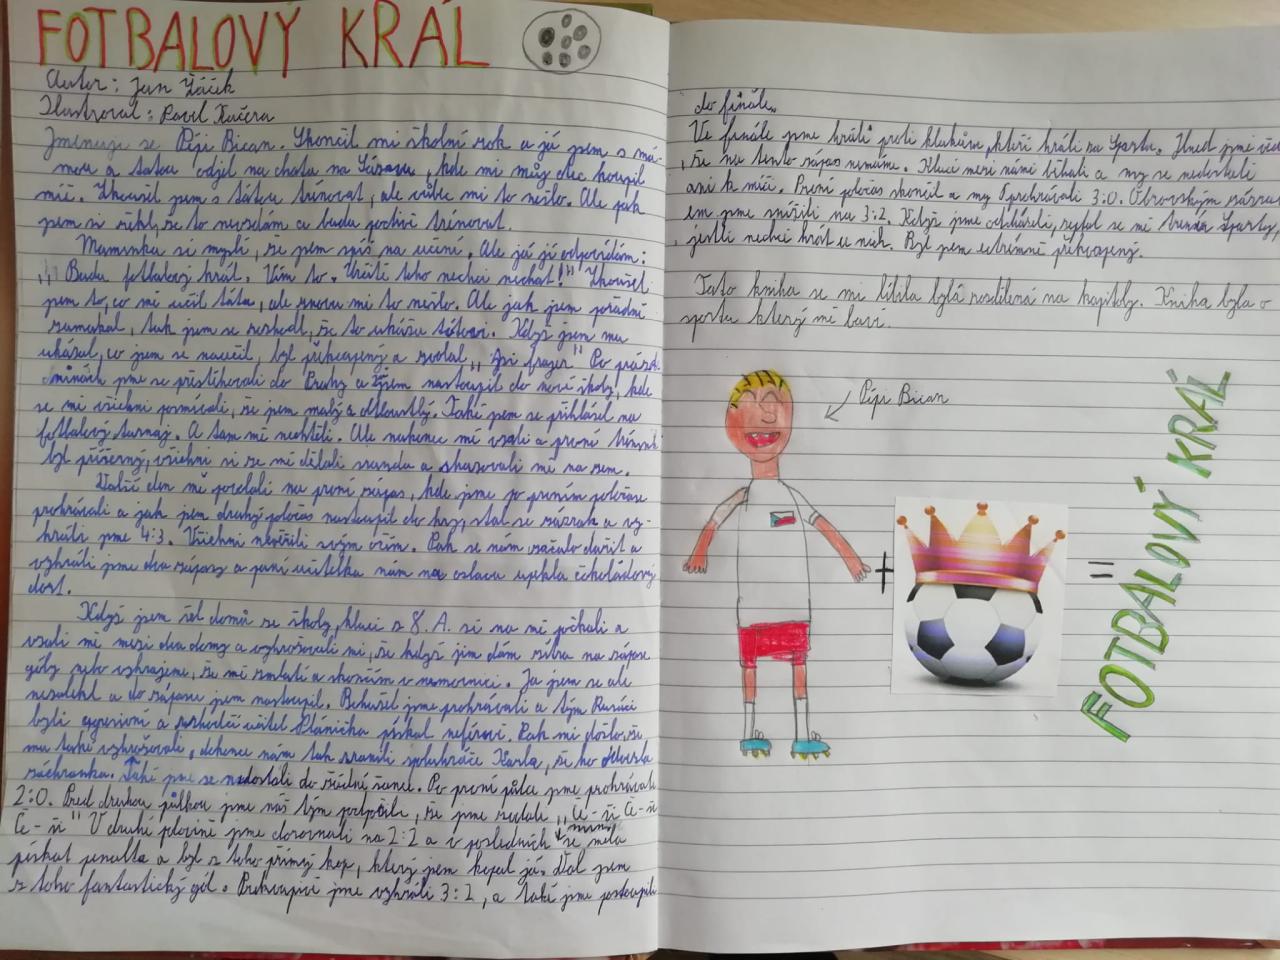 FOTBALOVÝ KRÁL
Autor: Jan Žáček
Ilustroval: Pavel Kučera
Jmenuji se Pépi Bican. Skončil mi školní rok a já jsem s má-
mou a tatou odjel na chatu na Sázavu, kde mi můj otec koupil
míč. Zkoušel jsem s tátou trénovat, ale vůbec mi to nešlo. Ale pak
jsem si řekl, že to nevzdám a budu poctivě trénovat.
Maminka si myslí, že jsem spíš na učení. Ale já jí odpovídám:
„Budu fotbalový král. Vím to. Určitě toho nechci nechat!" Zkoušel
jsem to, co mě učil táta, ale znovu mi to nešlo. Ale jak jsem pořádně
zamakal, tak jsem se rozhodl, že to ukážu tátovi. Když jsem mu
ukázal, co jsem se naučil, byl překvapený a zvolal „Jsi frajer" Po prázd-
ninách jsme se přestěhovali do Prahy a jsem nastoupil do nové školy, kde
se mi všichni posmívali, že jsem malý a obtloustlý. Také jsem se přihlásil na
fotbalový turnaj. A tam mě nechtěli. Ale nakonec mě vzali a první trénink
byl příšerný, všichni si ze mě dělali srandu a shazovali mě na zem.
Další den mě povolali na první zápas, kde jsme po prvním poločase
prohrávali a jak jsem druhý poločas nastoupil do hry, stal se zázrak a vy-
hráli jsme 4:3. Všichni nevěřili svým očím. Pak se nám začalo dařit a
vyhráli jsme dva zápasy a paní učitelka nám na oslavu upekla čokoládový
dort.
Když jsem šel domů ze školy, kluci z 8. A. si na mě počkali a
vzali mě mezi dva domy a vyhrožovali mi, že když jim dám zítra na zápase
góly nebo vyhrajeme, že mě zmlatí a skončím v nemocnici. Ja jsem se ale
nezalekl a do zápasu jsem nastoupil. Bohužel jsme prohrávali a tým
byli agresivní a rozhodčí učitel Plánička pískal neférově. Pak mi došlo, že
mu také vyhrožovali, dokonce nám tak zranili spoluhráče Karla, že ho odvezla
záchranka. Také jsme se nedostali do žádné šance. Po první půlce jsme prohrávali
2:0. Před druhou půlkou jsme náš tým podpořili, že jsme volali „Če-ši Če-ši
Če-ši" V druhé polovině jsme dorovnali na 2:2 a v posledních minut se měla
pískat penalta a byl z toho přímý kop, který jsem kopal já. Dal jsem
z toho fantastický gól. Překvapivě jsme vyhráli 3:2, a také jsme postoupili
do finále.
Ve finále jsme hráli proti klukům, kteří hráli za Spartu. Hned jsme
, že na tento zápas nemáme. Kluci mezi námi běhali a my se nedostali
ani k míči. První poločas skončil a my prohrávali 3:0. Obrovským zázrak
em jsme snížili na 3:2. Když jsme odcházeli, zeptal se mě trenér Sparty,
jestli nechci hrát u nich. Byl jsem extrémně překvapený.
Tato kniha se mi líbila byla rozdělená na kapitoly. Kniha byla o
sportu který mě baví.
Pépi Bican
+
=
FOTBALOVÝ KRÁL